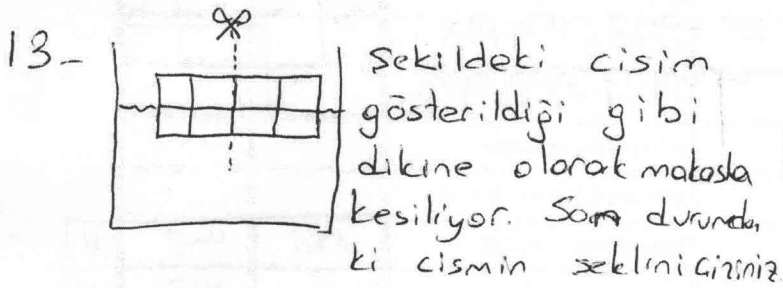 13-
Şekildeki cisim
gösterildiği gibi
dikine olarak makasla
kesiliyor. Son durumda,
ki cismin şeklini çiziniz